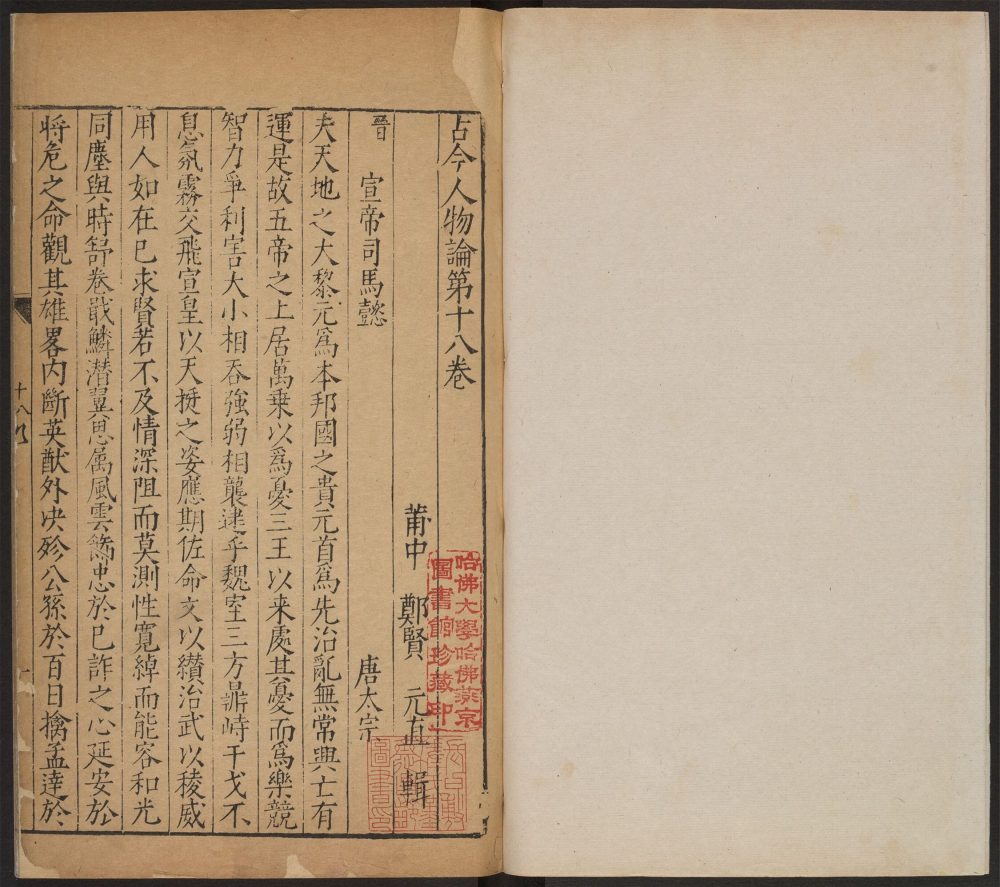 古今人物論第十八卷
莆中 鄭賢 元直 輯
晉
宣帝司馬懿 唐太宗
夫天地之大黎元爲本邦國之貴元首爲先治亂無常興亡有
運是故五帝之上居萬乗以爲憂三王以来處其憂而爲樂競
智力爭利害大小相吞強弱相襲逮乎魏室三方鼎峙干戈不
息氛霧交飛宣皇以天挺之姿應期佐命文以纉治武以稜威
用人如在已求賢若不及情深阻而莫測性寛綽而能容和光
同塵與時舒卷戢鱗潜翼思属風雲飾忠於已詐之心延安於
将危之命觀其雄畧内斷英猷外决殄公孫於百日擒孟達於
十八
一
哈佛大學哈佛燕京
圖書館珍藏印